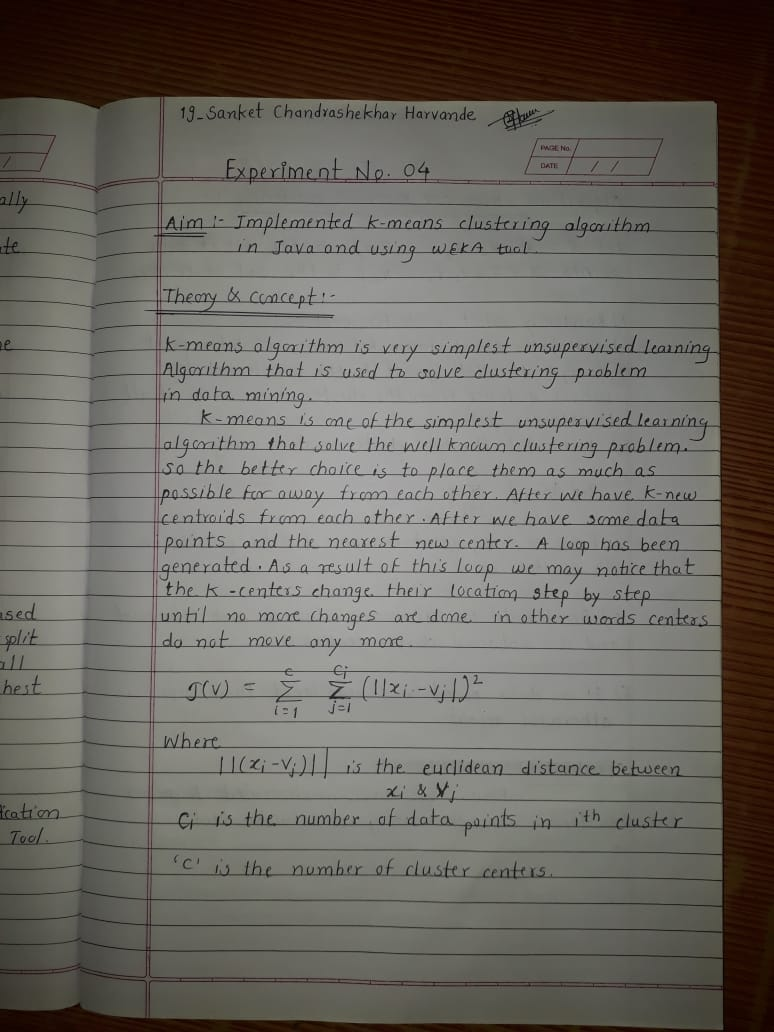 19_Sanket Chandrashekhar Harvande
PAGE No.
DATE / /
Experiment No. 04
Aim :- Implemented k-means clustering algorithm
in Java and using WEKA tool.
Theory & concept :-
K-means algorithm is very simplest unsupervised learning
Algorithm that is used to solve clustering problem
in data mining.
K-means is one of the simplest unsupervised learning
algorithm that solve the well known clustering problem.
so the better choice is to place them as much as
possible far away from each other. After we have k-new
centroids from each other. After we have some data
points and the nearest new center. A loop has been
generated. As a result of this loop we may notice that
the k-centers change their location step by step
until no more changes are done in other words centers
do not move any more.
J(V) = c∑i=1 ci∑j=1 (||xi - vj|)²
Where
||(xi-vj)|| is the euclidean distance between
xi & vj
Ci is the number of data points in ith cluster
'C' is the number of cluster centers.
/
ally
te
ne
used
split
all
hest
fication
Tool.